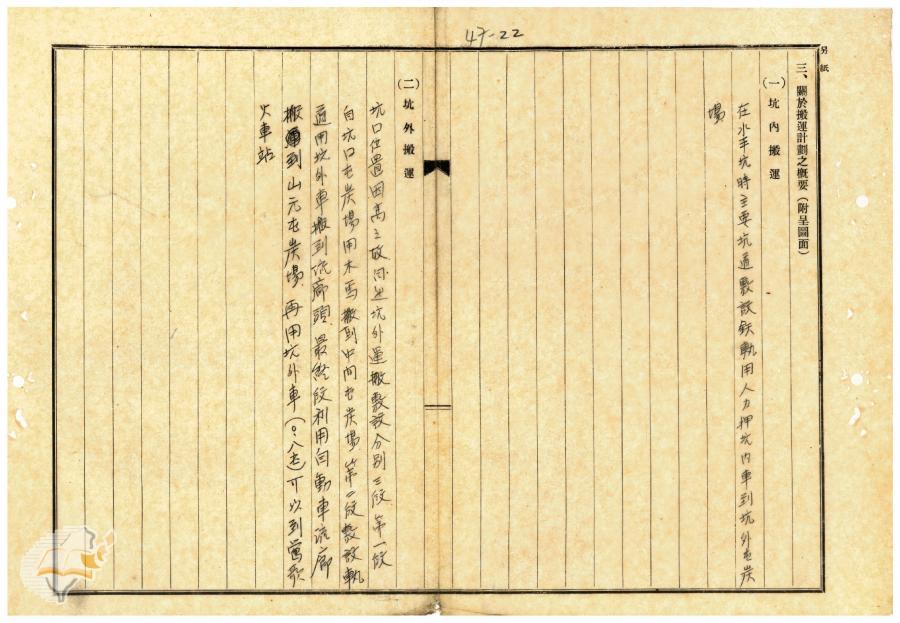 47-22
另紙
三、關於搬運計劃之概要(附呈圖面)
(一)坑內搬運
在水平坑時主要坑道敷設鉄軌用人力押坑內車到坑外屯炭
場
(二)坑外搬運
坑口位置因高之故問坑外運搬敷設分別三段第一段
自坑口屯炭場用木馬搬到中間屯炭場第二段敷設軌
道用坑外車搬到流廊頭、最終段利用自動車流廊
搬運到山元屯炭場、再用坑外車(0.八屯)可以到鶯歌
火車站